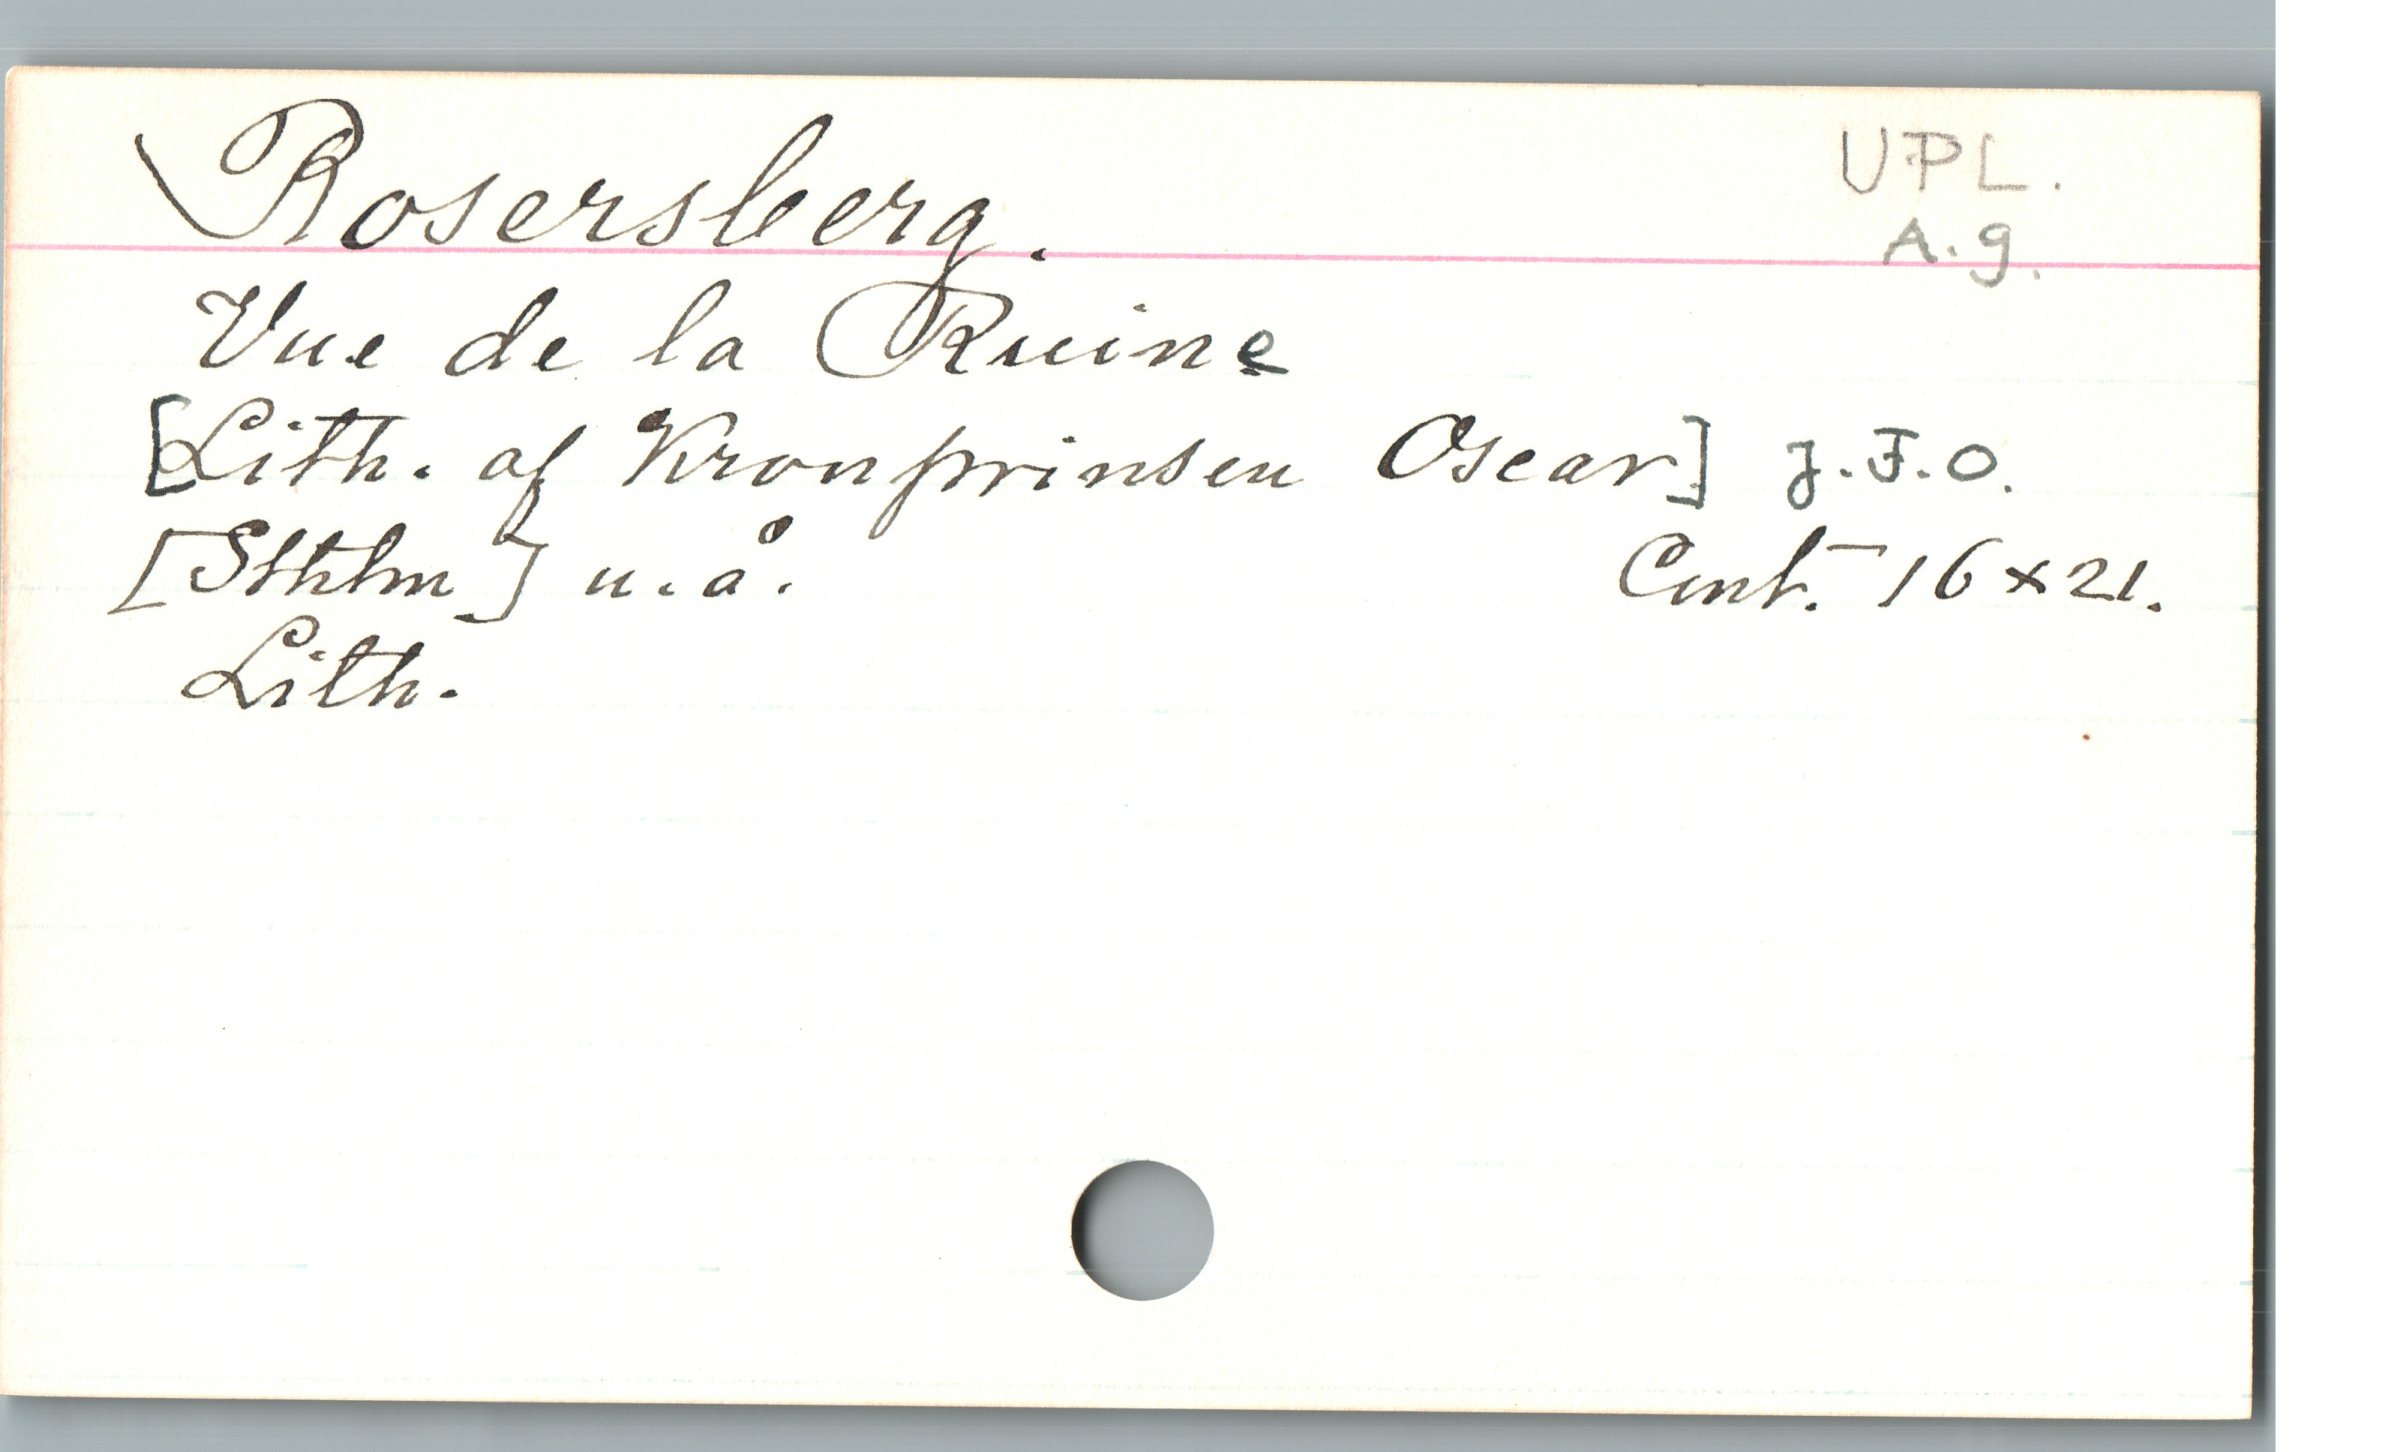 Rosersberg.
UPL.
A.g.
Vue de la Ruine
[Lith. af Kronprinsen Oscar] J.F.O.
[Sthlm] u.å.
Cent. 16 x 21.
Lith.